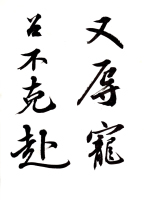 又辱寵
召不克赴